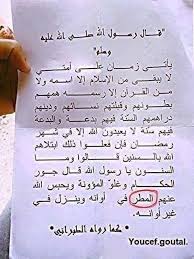 "قال رسول الله صلى الله عليه
وسلم"
يأتي زمان على أمتي
لا يبقى من الإسلام إلا اسمه ولا
من القرآن إلا رسمه همهم
بطونهم وقبلتهم نساؤهم ودينهم
دراهمهم فيهم بدعة والبدعة
فيهم سنة لا يعبدون الله إلا في شهر
رمضان فإن فعلوا ذلك ابتلاهم
الله بالسنين قالوا وما
السنون يا رسول الله قال جور
الحكام وغلو المؤونة ويحبس الله
عنهم المطر في أوانه وينزل في
غير أوانه.
كما رواه الطبراني
Youcef.goutal.